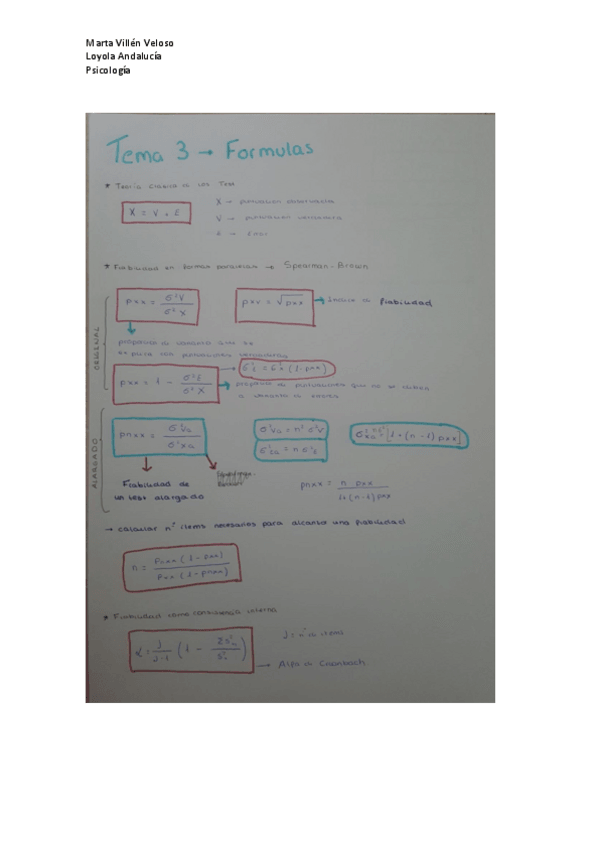 Marta Villén Veloso
Loyola Andalucía
Psicología
Tema 3 → Formulas
* Teoría clásica de los Test
X = V + E
X → puntuación observada
V → puntuación verdadera
E → Error
* Fiabilidad en formas paralelas → Spearman-Brown
ORIGINAL
ρxx = σ²V / σ²X
ρxv = √ρxx → Índice de fiabilidad
proporción de varianza que se
explica las puntuaciones verdaderas
σ²E = σ²X (1 - ρxx)
ρxx = 1 - σ²E / σ²X
proporción de puntuaciones que no se deben
a varianza de error
ALARGADO
ρnxx = σ²Va / σ²Xa
σ²Va = n² σ²V
σ²Ea = n σ²E
σ²Xa = nσ²x [1 + (n - 1) ρxx]
Fiabilidad de
un test alargado
ρnxx = n ρxx / 1+(n-1)ρxx
→ calcular nº items necesarios para alcanzar una fiabilidad
n = ρnxx (1 - ρxx) / ρxx (1 - ρnxx)
* Fiabilidad como consistencia interna
α = J / J-1 (1 - Σs² / s²)
J = nº de items
→ Alfa de Cronbach